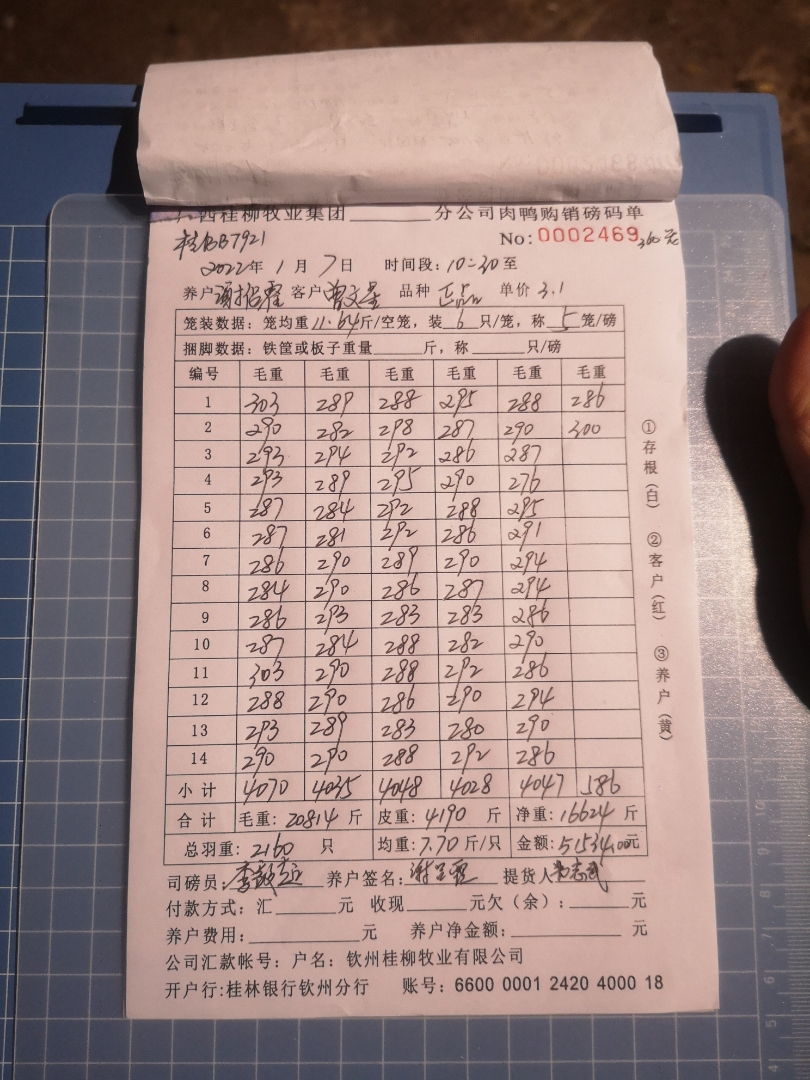 西桂柳牧业集团______分公司肉鸭购销磅码单
桂BB7921 No:0002469 360元
2022年1月7日 时间段:10:30至
养户 客户 曾文星 品种 正品 单价 3.1
笼装数据:笼均重11.64斤/空笼,装6只/笼,称5笼/磅
捆脚数据:铁筐或板子重量______斤,称______只/磅
编号 毛重 毛重 毛重 毛重 毛重 毛重
1 303 289 288 295 288 286
2 290 282 298 287 290 300
3 293 294 292 286 287
4 293 289 295 290 276
5 287 284 292 288 295
6 287 281 292 286 291
7 286 290 289 290 294
8 284 290 286 287 294
9 286 293 283 283 286
10 287 284 288 282 290
11 303 290 288 292 286
12 288 290 286 290 294
13 293 289 283 280 290
14 290 290 288 292 286
小计 4070 4035 4048 4028 4047 586
合计 毛重:20814斤 皮重:4190斤 净重:16624斤
总羽重:2160只 均重:7.70斤/只 金额:51534.00元
司磅员: 养户签名: 提货人
付款方式:汇______元 收现______元欠(余):______元
养户费用:______元 养户净金额:______元
公司汇款帐号:户名:钦州桂柳牧业有限公司
开户行:桂林银行钦州分行 账号:6600 0001 2420 4000 18
①存根(白) ②客户(红) ③养户(黄)